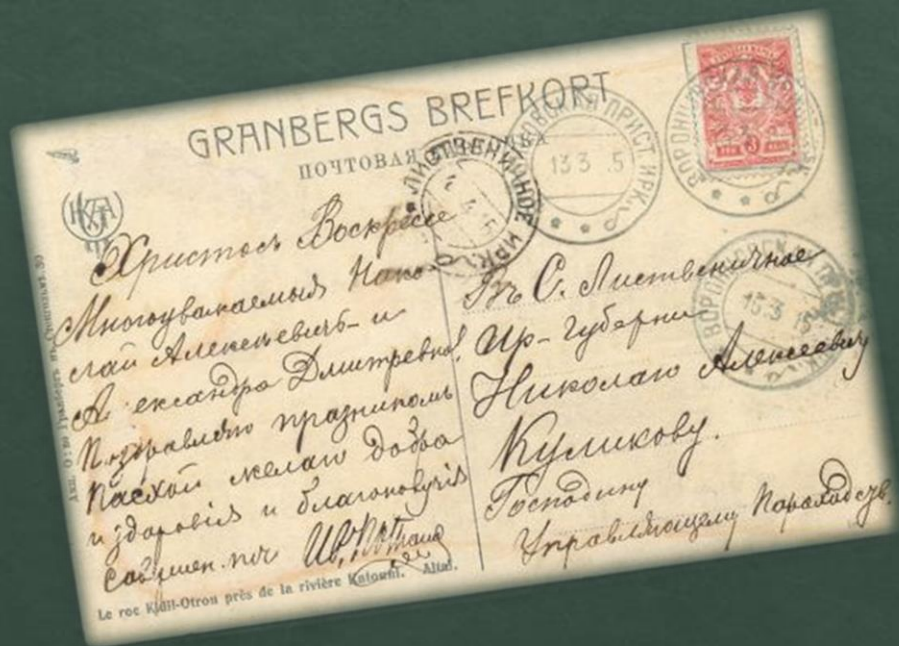 GRANBERGS BREFKORT
ПОЧТОВАЯ
Христосъ Воскресе
Многоуважаемый Нико
лай Алексѣевичъ и
Александра Дмитревна,
Поздравляю празникомъ
Пасхой желаю добра
и здоровія и благополучія
Le roc Kidil-Otrou près de la rivière Katouni. Altai.
Въ С. Лиственичное
Ир- губерни
Николаю Алексеевичу
Куликову.
Господину
Управляющему Пароходств.
ЛИСТВЕНИЧНОЕ ИРК.
ПРИСТ. ИРК.
13 3 15
ВОРОНЦОВСК
13 3 15
3